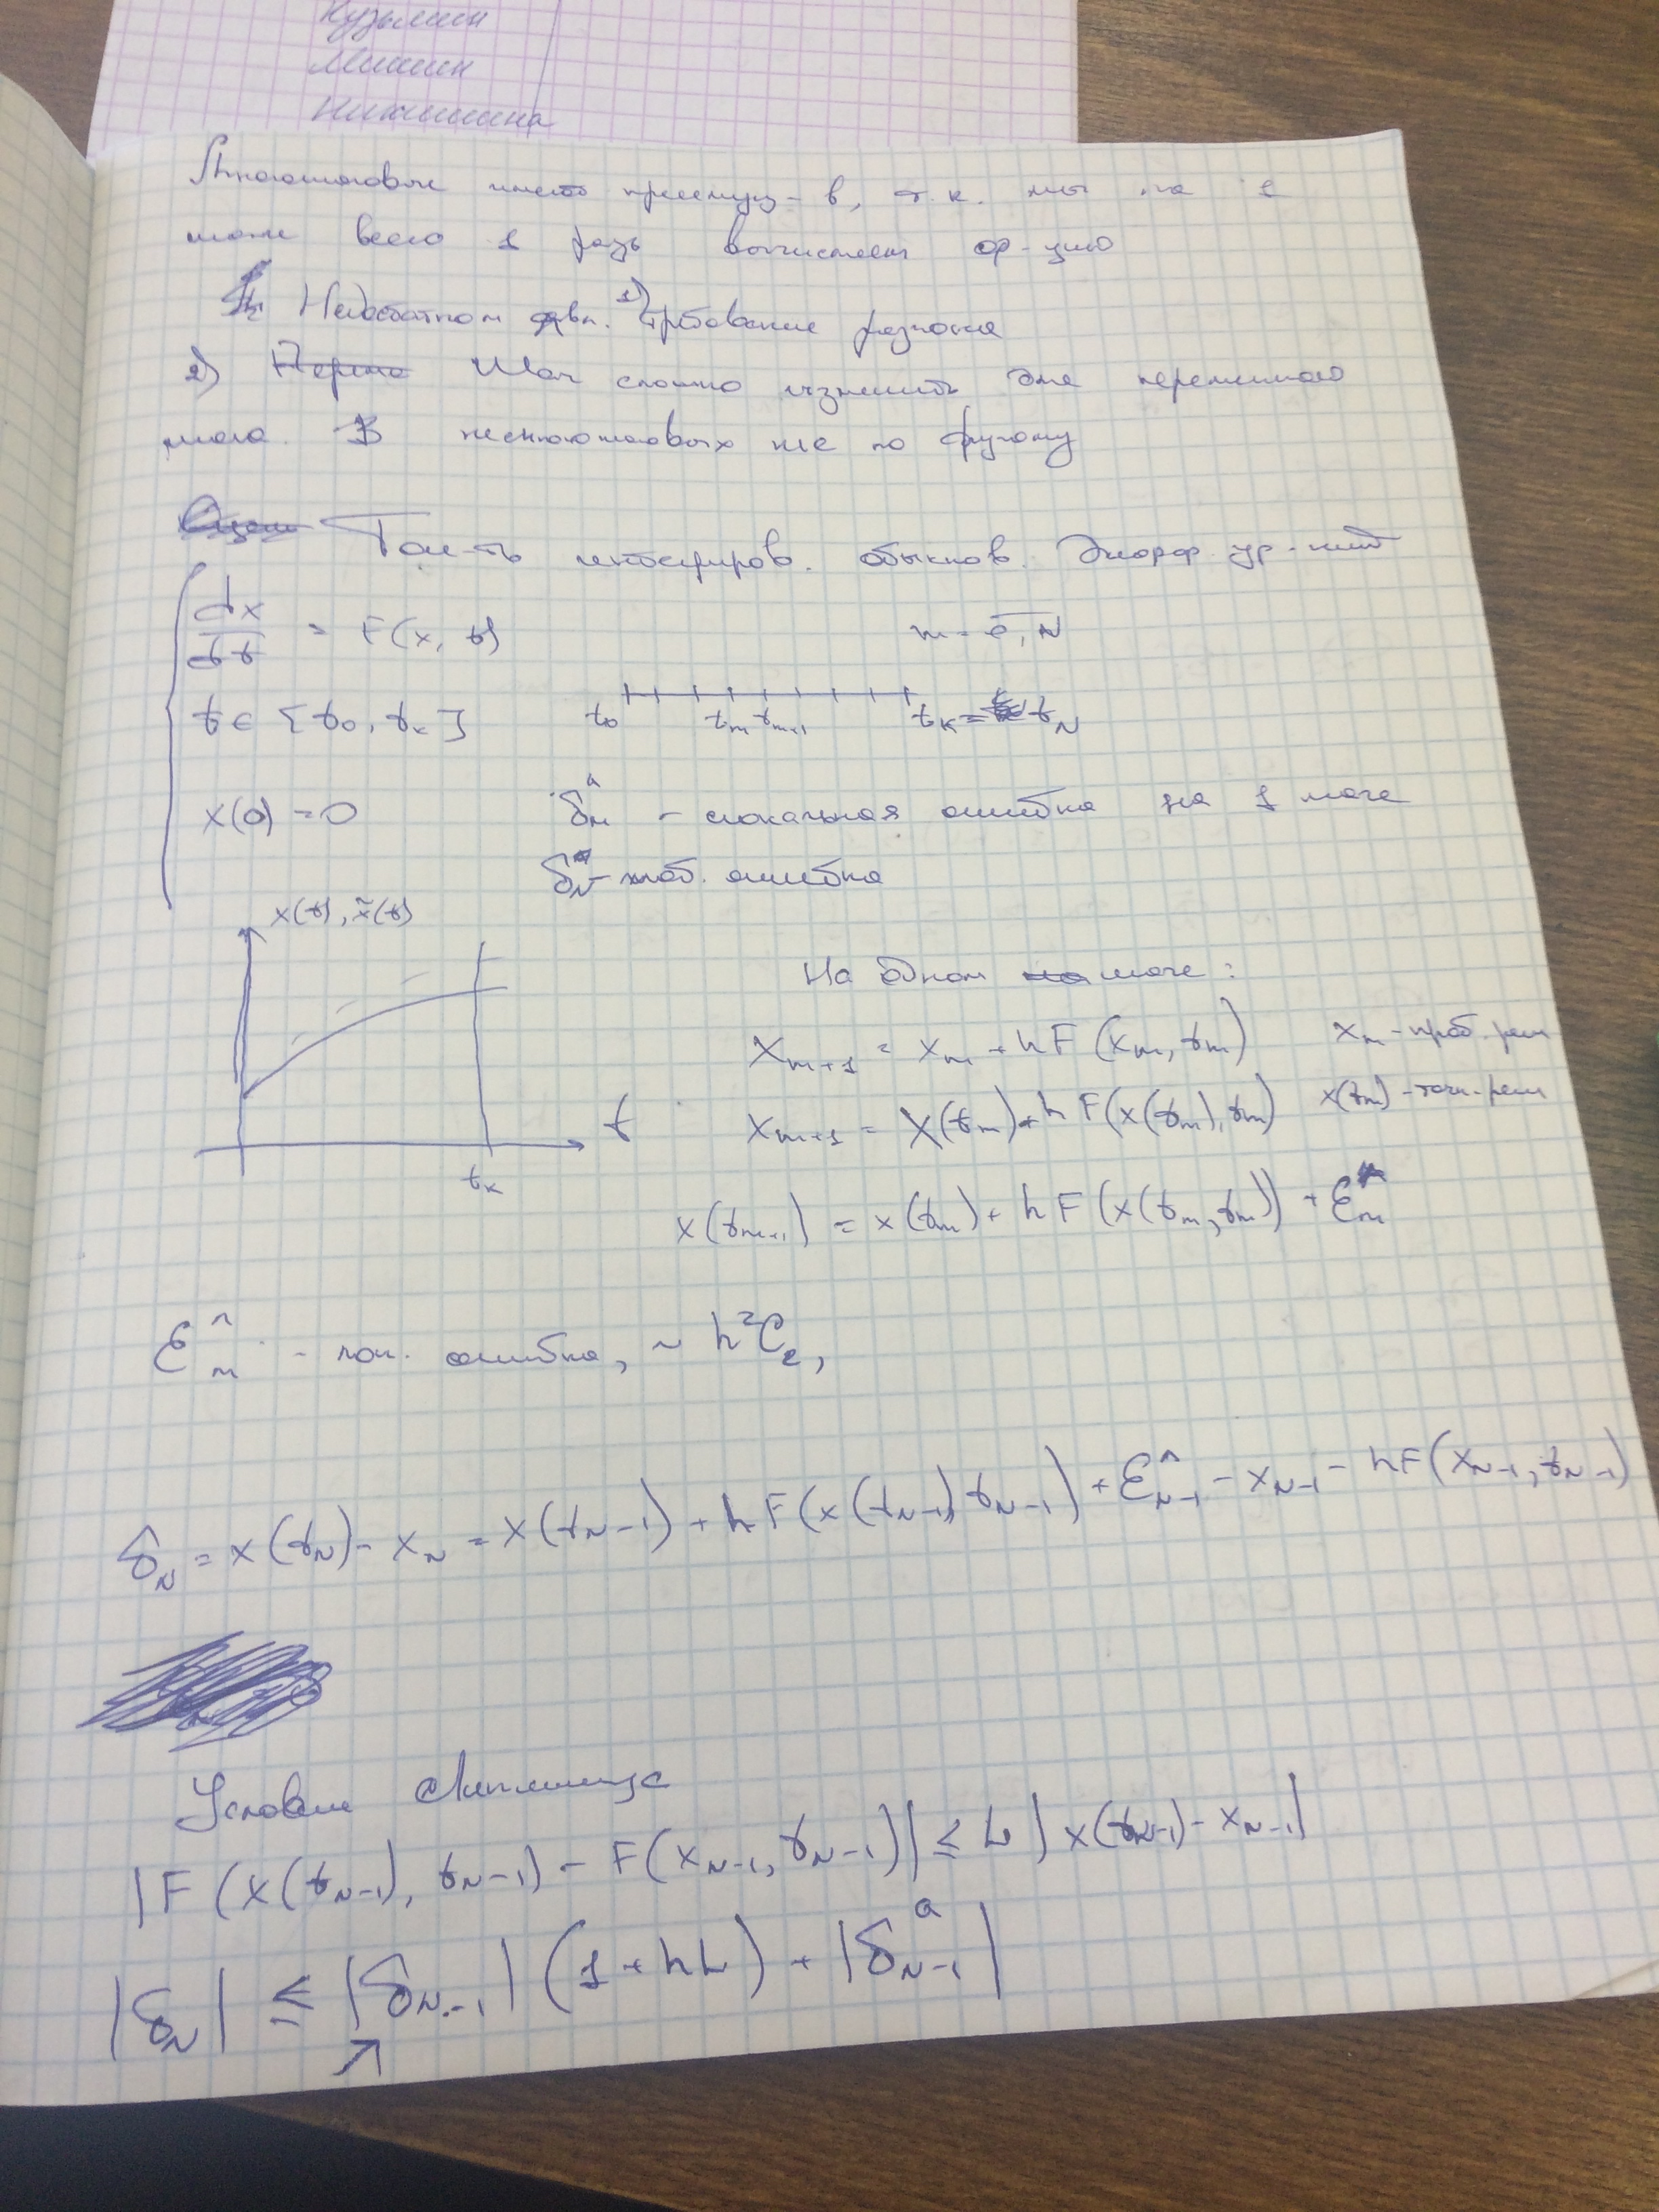 Кузьмин
Мишин
Никишина
Многошаговые имеют преимущ-в, т.к. мы на 1
шаге всего 1 раз вычисляем ф-цию
Недостатком явл. 1) требование разгона
2) Шаг сложно изменить для переменного
шага. В неодношаговых не по другому
Точ-ть интегриров. обыкнов. дифф. ур-ний
dx/dt = F(x, t)
m = 0, N
t ∈ [t₀, tₖ]
t₀ tₘ tₘ₊₁ tₖ = t_N
x(0) = 0
δₘᵃ - локальная ошибка на 1 шаге
δ_N - глоб. ошибка
x(t), x̃(t)
t
tₖ
На одном шаге:
xₘ₊₁ = xₘ + hF(xₘ, tₘ) xₘ - приб. реш
xₘ₊₁ = x(tₘ) + hF(x(tₘ), tₘ) x(tₘ) - точн. реш
x(tₘ₊₁) = x(tₘ) + hF(x(tₘ, tₘ)) + εₘ
εₘ^ - лок. ошибка, ~ h²C₂,
δ_N = x(t_N) - x_N = x(t_N-1) + hF(x(t_N-1), t_N-1) + ε^_N-1 - x_N-1 - hF(x_N-1, t_N-1)
Условие Липшица
|F(x(t_N-1), t_N-1) - F(x_N-1, t_N-1)| ≤ L |x(t_N-1) - x_N-1|
|δ_N| ≤ |δ_N-1| (1 + hL) + |δᵃ_N-1|